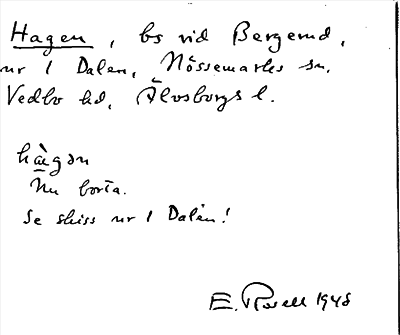 Hagen, bs vid Bergerud,
nr 1 Dalen, Nössemarks sn,
Vedbo hd, Älvsborgs l.
hàgən
Nu borta.
Se skiss nr 1 Dalen!
E. Rosell 1948